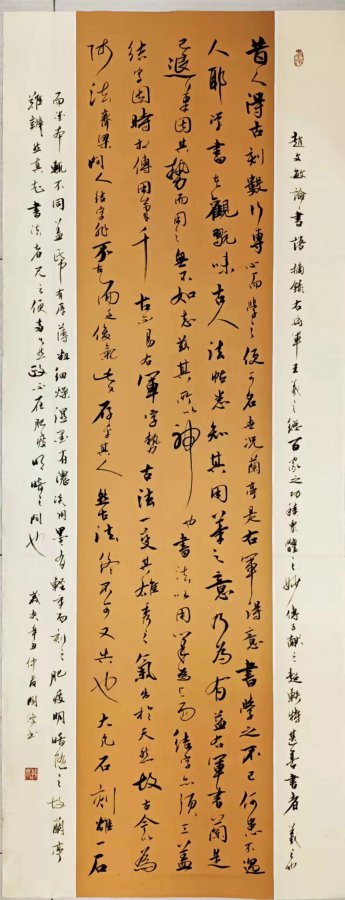 趙文敏論書語摘錄右將軍王羲之總百家之功極衆體之妙傳子獻之超軼特甚善書者羲之而
昔人得古刻數行專心而學之便可名世況蘭亭是右軍得意書學之不已何患不過
人耶學書在觀翫味古人法帖悉知其用筆之意乃為有益右軍書蘭是
已退筆因其勢而用之無不如志茲其所以神也書法以用筆為上而結字亦須工蓋
結字因時相傳用筆千古不易右軍字勢古法一變其雄秀之氣出於天然故古今以為
師法齊梁間人結字非不古而乏俊氣此又存乎其人然古法終不可失也大凡石刻雖一石
而墨本輒不同蓋紙有厚薄粗細燥濕墨有濃淡用墨有輕重而刻之肥瘦明暗隨之故蘭亭
難辨然真知書法者見之便當了然政不在肥瘦明暗之間也歲次辛丑仲夏